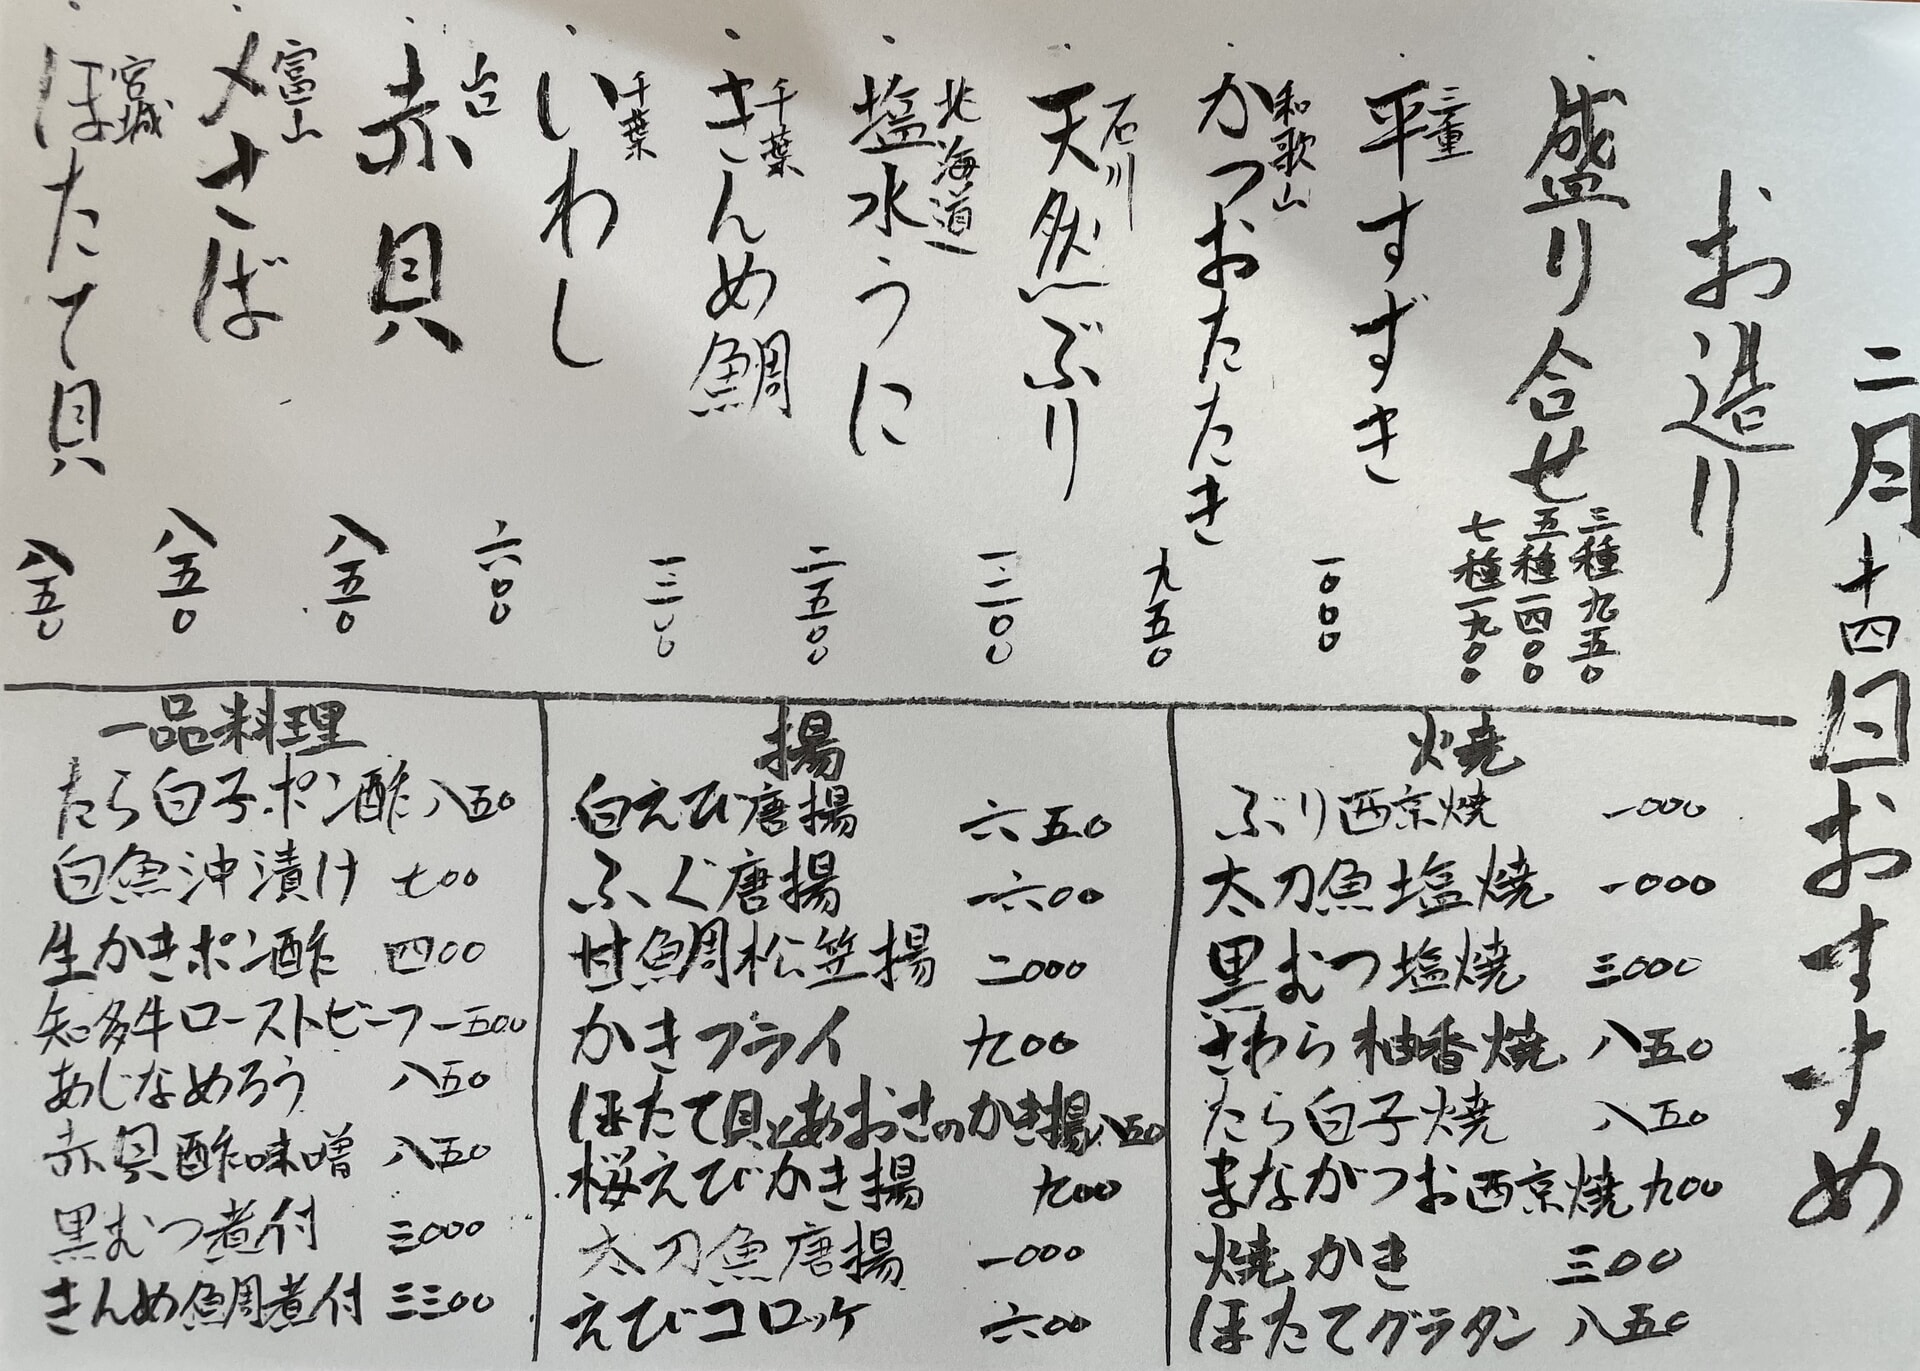 二月十四日おすすめ
お造り
盛り合せ 三種 九五〇
五種 一四〇〇
七種 一九〇〇
三重 平すずき 一〇〇〇
和歌山 かつおたたき 九五〇
石川 天然ぶり 一二〇〇
北海道 塩水うに 二五〇〇
千葉 きんめ鯛 一二〇〇
千葉 いわし 六〇〇
赤貝 八五〇
富山 〆さば 八五〇
宮城 ほたて貝 八五〇
焼
ぶり西京焼 一〇〇〇
太刀魚塩焼 一〇〇〇
黒むつ塩焼 三〇〇〇
さわら柚香焼 八五〇
たら白子焼 八五〇
まながつお西京焼 九〇〇
焼かき 三〇〇
ほたてグラタン 八五〇
揚
白えび唐揚 六五〇
ふぐ唐揚 一六〇〇
甘鯛松笠揚 二〇〇〇
かきフライ 九〇〇
ほたて貝とあおさのかき揚 八五〇
桜えびかき揚 九〇〇
太刀魚唐揚 一〇〇〇
えびコロッケ 六〇〇
一品料理
たら白子ポン酢 八五〇
白魚沖漬け 七〇〇
生かきポン酢 四〇〇
知多牛ローストビーフ 一五〇〇
あじなめろう 八五〇
赤貝酢味噌 八五〇
黒むつ煮付 三〇〇〇
きんめ鯛煮付 三三〇〇